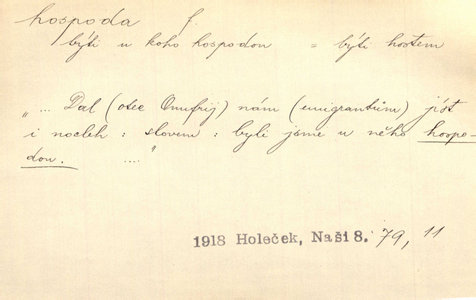 hospoda f.
býti u koho hospodou = býti hostem
„... Dal (otec Onufrij) nám (emigrantům) jíst
i nocleh : slovem : byli jsme u něho hospo-
dou. ...."
1918 Holeček, Naši 8. 79, 11